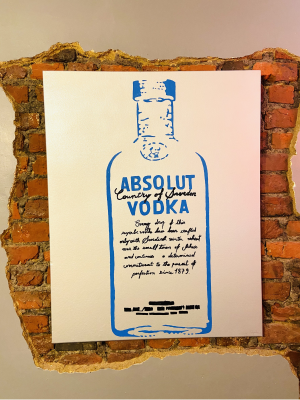 ABSOLUT
Country of Sweden
VODKA
Every drop of this
vodka has been crafted
with Swedish winter wheat
near the small town of Åhus
and continues a determined
commitment to the pursuit of
perfection since 1879.